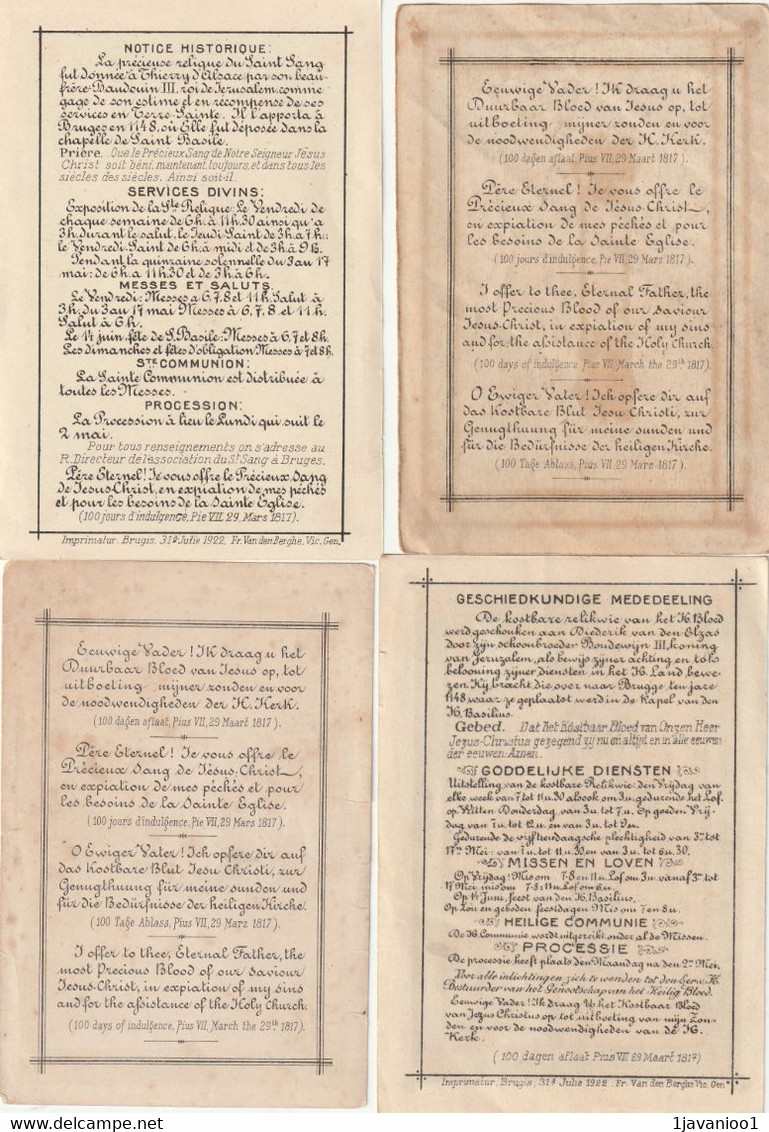 NOTICE HISTORIQUE:
La précieuse relique du Saint Sang
fut donnée à Thierry d'Alsace par son beau-
frère Baudouin III, roi de Jerusalem, comme
gage de son estime et en récompense de ses
services en Terre-Sainte. Il l'apporta à
Bruges en 1148, où Elle fut déposée dans la
chapelle de Saint Basile.
Prière. Que le Précieux Sang de Notre Seigneur Jésus
Christ soit béni, maintenant, toujours, et dans tous les
siècles des siècles. Ainsi soit-il.
SERVICES DIVINS:
Exposition de la Ste Relique: Le Vendredi de
chaque semaine de 6h. à 11h.30 ainsi qu'a
3h. durant le salut, le Jeudi Saint de 3h. à 7h.:
le Vendredi-Saint de 6h. à midi et de 3h. à 9h.
Pendant la quinzaine solennelle du 3 au 17
mai: de 6h. à 11h.30 et de 3h. à 6h.
MESSES ET SALUTS.
Le Vendredi: Messes à 6, 7, 8 et 11h. Salut à
3h. du 3 au 17 mai Messes à 6, 7, 8, et 11h.
Salut à 6h.
Le 14 juin fête de S. Basile: Messes à 6, 7 et 8h.
Les dimanches et fêtes d'obligation Messes à 7 et 8h.
STE COMMUNION:
La Sainte Communion est distribuée à
toutes les Messes.
PROCESSION:
La Procession à lieu le Lundi qui suit le
2 mai.
Pour tous renseignements on s'adresse au
R. Directeur de l'association du St. Sang à Bruges.
Père Eternel! Je vous offre le Précieux Sang
de Jesus-Christ, en expiation de mes péchés
et pour les besoins de la Sainte Eglise.
(100 jours d'indulgence, Pie VII, 29, Mars 1817).
Imprimatur. Brugis, 31a Julie 1922, Fr. Van den Berghe, Vic. Gen.
Eeuwige Vader! Ik draag u het
Duurbaar Bloed van Jesus op, tot
uitboeting mijner zonden en voor
de noodwendigheden der H. Kerk.
(100 dagen aflaat, Pius VII, 29 Maart 1817).
Père Eternel! Je vous offre le
Précieux Sang de Jésus-Christ,
en expiation de mes péchés et pour
les besoins de la Sainte Eglise.
(100 jours d'indulgence, Pie VII, 29 Mars 1817).
I offer to thee, Eternal Father, the
most Precious Blood of our saviour
Jesus-Christ, in expiation of my sins
and for the assistance of the Holy Church.
(100 days of indulgence, Pius VII, March the 29th 1817).
O Ewiger Vater! Ich opfere dir auf
das Kostbare Blut Jesu Christi, zur
Genugthuung für meine sunden und
für die Bedürfnisse der heiligen Kirche.
(100 Tage Ablass, Pius VII, 29 Marz 1817).
Eeuwige Vader! Ik draag u het
Duurbaar Bloed van Jesus op, tot
uitboeting mijner zonden en voor
de noodwendigheden der H. Kerk.
(100 dagen aflaat, Pius VII, 29 Maart 1817).
Père Eternel! Je vous offre le
Précieux Sang de Jésus-Christ,
en expiation de mes péchés et pour
les besoins de la Sainte Eglise.
(100 jours d'indulgence, Pie VII, 29 Mars 1817).
O Ewiger Vater! Ich opfere dir auf
das Kostbare Blut Jesu Christi, zur
Genugthuung für meine sunden und
für die Bedürfnisse der heiligen Kirche.
(100 Tage Ablass, Pius VII, 29 Marz 1817).
I offer to thee, Eternal Father, the
most Precious Blood of our saviour
Jesus-Christ, in expiation of my sins
and for the assistance of the Holy Church.
(100 days of indulgence, Pius VII, March the 29th 1817).
GESCHIEDKUNDIGE MEDEDEELING
De kostbare relikwie van het H. Bloed
werd geschonken aan Diederik van den Elzas
door zijn schoonbroeder Boudewijn III, koning
van Jeruzalem, als bewijs zijner achting en tot
belooning zijner diensten in het H. Land bewe-
zen. Hij bracht die over naar Brugge ten jare
1148 waar ze geplaatst werd in de Kapel van den
H. Basilius.
Gebed. Dat het Kostbaar Bloed van Onzen Heer
Jezus-Christus gezegend zij nu en altijd en in alle eeuwen
der eeuwen. Amen.
GODDELIJKE DIENSTEN
Uitstelling van de kostbare Relikwie: den Vrijdag van
elke week van 7 tot 11 u. 30 alsook om 3 u. gedurende het Lof,
op Witten Donderdag van 3 u. tot 7 u. Op goeden Vrij-
dag van 7 u. tot 12 u. en van 3 u. tot 9 u.
Gedurende de vijftiendaagsche plechtigheid van 3en tot
17en Mei: van 7 u. tot 11 u. 30 en van 3 u. tot 6 u. 30.
MISSEN EN LOVEN
Op Vrijdag! Mis om 7-8 en 11 u. Lof om 3 u. vanaf 3en tot
17 Mei mis om 7-8 & 11 u. Lof om 6 u.
Op 14 Juni, feest van den H. Basilius,
Op Zon en geboden feestdagen Mis om 7 en 8 u.
HEILIGE COMMUNIE
De H. Communie wordt uitgereikt onder al de Missen.
PROCESSIE
De processie heeft plaats den Maandag na den 2en Mei.
Voor alle inlichtingen zich te wenden tot den Eerw. H.
Bestuurder van het Genootschap van het Heilig Bloed.
Eeuwige Vader! Ik draag U het Kostbaar Bloed
van Jezus Christus op tot uitboeting van mijn Zon-
den en voor de noodwendigheden van de H.
Kerk.
(100 dagen aflaat Pius VII 29 Maart 1817)
Imprimatur, Brugis, 31a Julie 1922. Fr. Van den Berghe Vic. Gen.
delcampe.net
1javanioo1